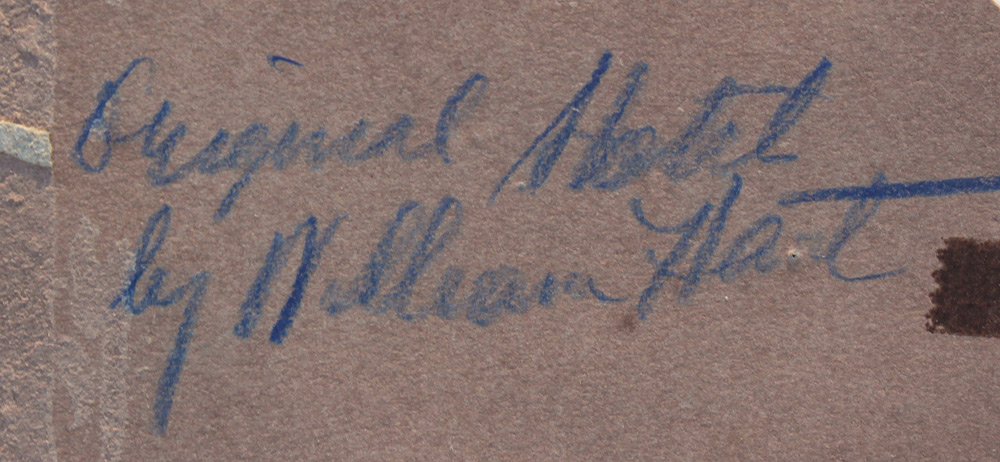 Original
by William Hart